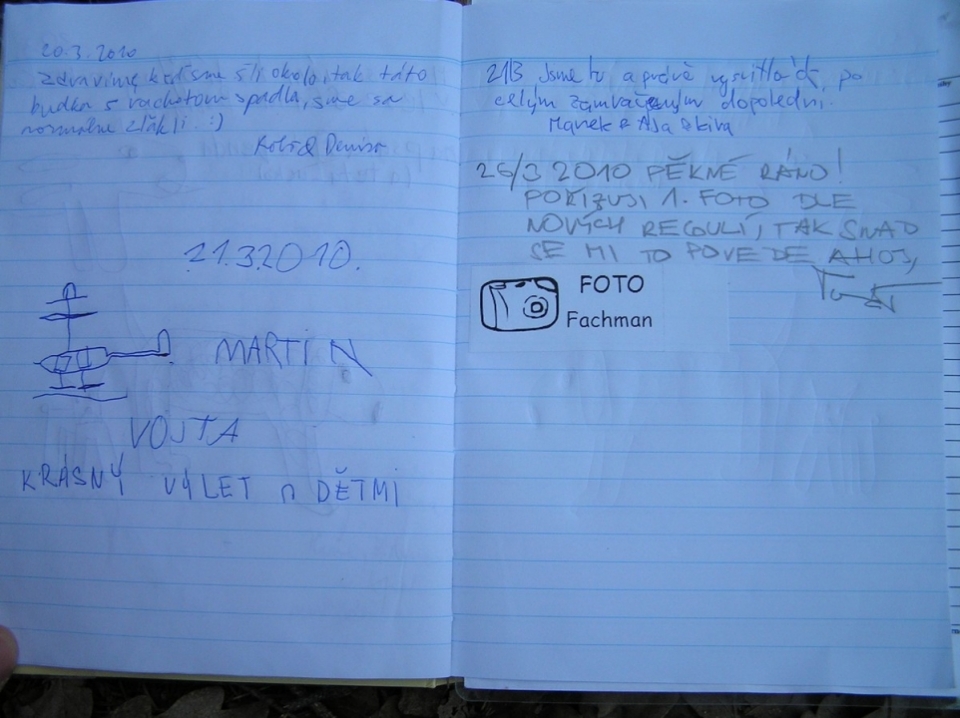 20.3.2010
Zdravíme, keď sme šli okolo, tak táto
budka s rachotom spadla, sme sa
normálne zľakli :)
Robo & Denisa
21.3.2010.
MARTIN
VOJTA
KRÁSNÝ VÝLET S DĚTMI
21/3 Jsme tu a právě vysvitlo po
celým zamračeným dopoledni.
Marek & Ája & kira
26/3 2010 PĚKNÉ RÁNO!
POŘIZUJI 1. FOTO DLE
NOVÝCH REGULÍ, TAK SNAD
SE MI TO POVEDE AHOJ,
FOTO
Fachman